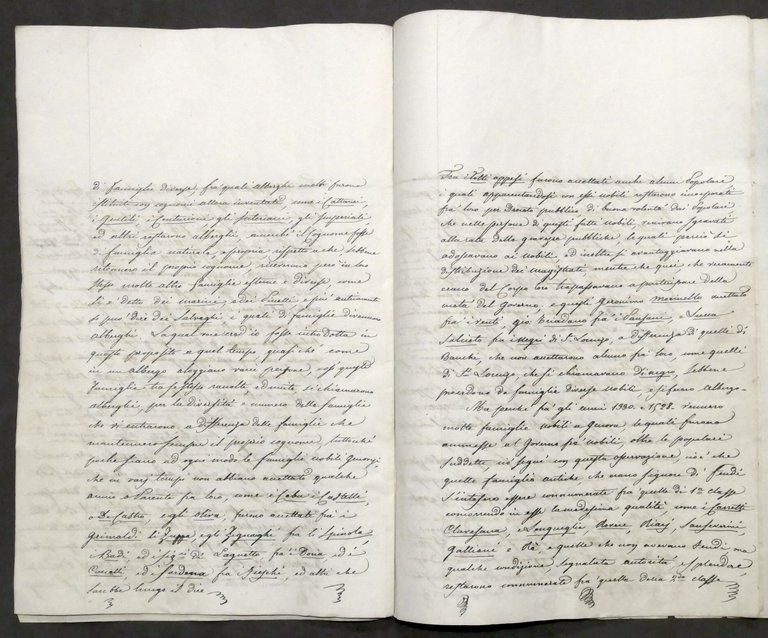 di Famiglie diverse, fra quali Alberghi molti furono
istituiti con cognomi allora inventati, come i Cattanei,
i Gentili, i Centurioni gli Interiani, gli Imperiali
ed altri restarono alberghi, ancorchè il Cognome fosse
di famiglia naturale, e propria rispetto a che sebbene
ritennero il proprio cognome, riceverono però in loro
stessi molte altre famiglie esterne e diverse, come
si è detto dei marini, e dei Pinelli e più anticamente
si può dire dei Salvaghi i quali di famiglie divennero
alberghi. La qual voce credo io fosse introdotta in
questo proposito a quel tempo quasi che come
in un albergo alloggiano varie persone, così quelle
famiglie tra se stesse raccolte, ed unite si chiamarono
alberghi, per la diversità e numero delle famiglie
che vi entrarono a differenza delle famiglie che
mantennero sempre il proprio cognome, tuttochè
poche siano ad ogni modo le famiglie nobili Genovesi,
che in varj tempi non abbiano accettato qualche
amico o Parente fra loro, come i Cebà i Castelli,
o De Castro, e gli Oliva, furono accettati fra i
Grimaldi. li Zuppa, e gli Zignaghi fra li Spinola
i Badi, ed i di Lagneto fra i Doria ed i
ed i Sardena fra i Fieschi, ed altri che
sarebbe lungo il dire
Fra i Tetti appesi furono accettati anche alcuni Popolari
i quali apparentandosi con essi nobili restarono incorporati
fra loro per Decreto pubblico di buona volontà dei Popolari
che nelle persone di questi fatti nobili, venivano sgravati
alla rata delle gravezze pubbliche le quali perciò si
addossavano ai nobili, ed inoltre si avantaggiavano nella
distribuzione dei magistrati, mentre che quei, che veramente
erano del Corpo loro trapassavano a participare della
metà del Governo, e questi Geronimo Morinello accettato
fra i Centi, gio: Briadano fra i Pansani, e Lucca
fra i Negri di S. Lorenzo, a differenza di quelli di
Banchi, che non accettarono alcuno fra loro, come quelli
di S. Lorenzo che si chiamavano Di negro, sebbene
procedono da famiglie diverse nobili, e si fecero Albergo.
Ma perchè fra gli anni 1330. e 1528. vennero
molte famiglie nobili a Genova, le quali furono
ammesse al Governo fra Nobili, oltre le popolari
suddette ciò seguì con questa osservazione, cioè che
quelle famiglie antiche che erano signore di Feudi
s'intesero essere connumerate fra quelle di 1ma classe
concorrendo in esse la medesima qualità, come i Carretti
Clavesana, e Lengueglia Rovere Riarj Sanseverini,
Gallioni e Rè e quelle che non avevano Feudi, ma
qualche condizione segnalata autorità, e splendore
restarono connumerate fra quelle della 2da classe